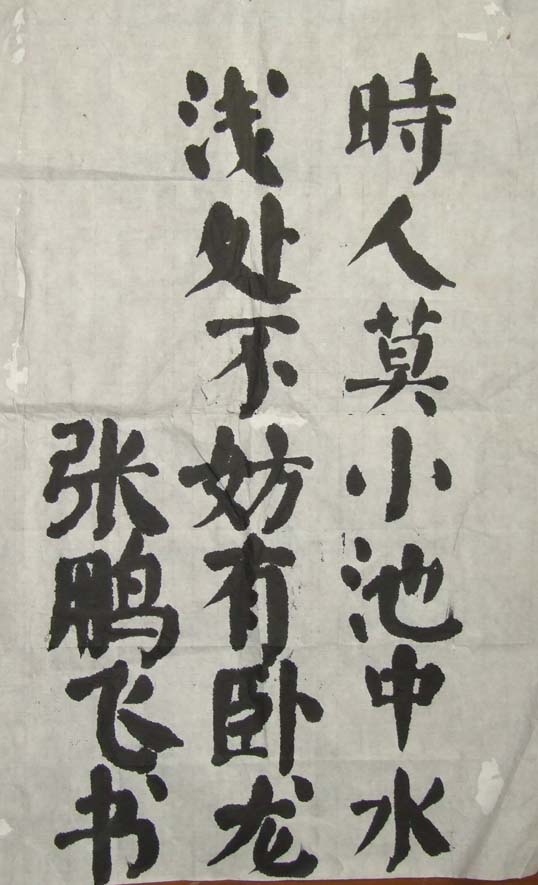 時人莫小池中水
浅处不妨有卧龙
张鹏飞书